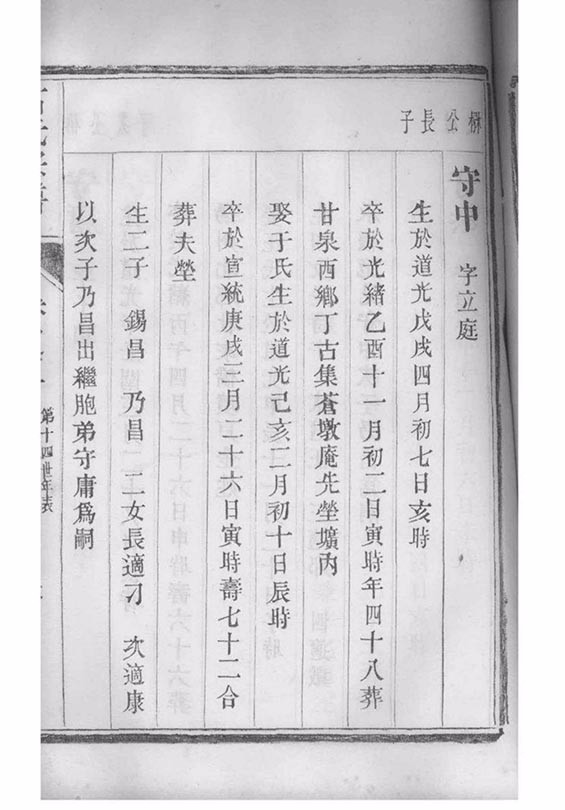 楙公長子
守中　字立庭
生於道光戊戌四月初七日亥時
卒於光緒乙酉十一月初二日寅時年四十八葬
甘泉西鄉丁古集蒼墩庵先塋壙內
娶于氏生於道光己亥二月初十日辰時
卒於宣統庚戌三月二十六日寅時壽七十二合
葬夫塋
生二子　錫昌　乃昌　二女長適刁　次適康
以次子乃昌出繼胞弟守庸爲嗣
第十四世年表